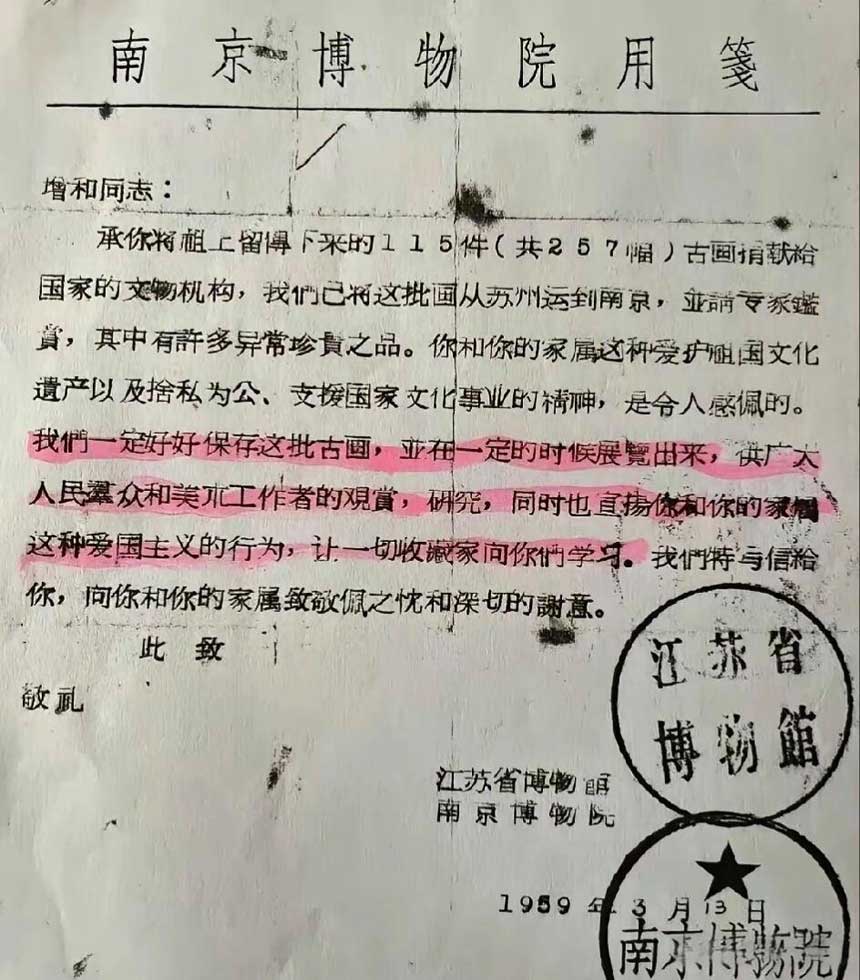 南京博物院用箋
增和同志：
承你将祖上留傳下来的115件（共257幅）古画捐献給
国家的文物机构，我們已将这批画从苏州运到南京，並請专家鑑
賞，其中有許多异常珍貴之品。你和你的家属这种爱护祖国文化
遺产以及捨私为公、支援国家文化事业的精神，是令人感佩的。
我們一定好好保存这批古画，並在一定的时候展覽出来，供广大
人民羣众和美朮工作者的观賞，研究，同时也宣揚你和你的家属
这种爱国主义的行为，让一切收藏家向你們学习。我們特与信給
你，向你和你的家属致敬佩之忱和深切的謝意。
此致
敬礼
江苏省博物館
南京博物院
1959年3月13日
江苏省
博物館
南京博物院